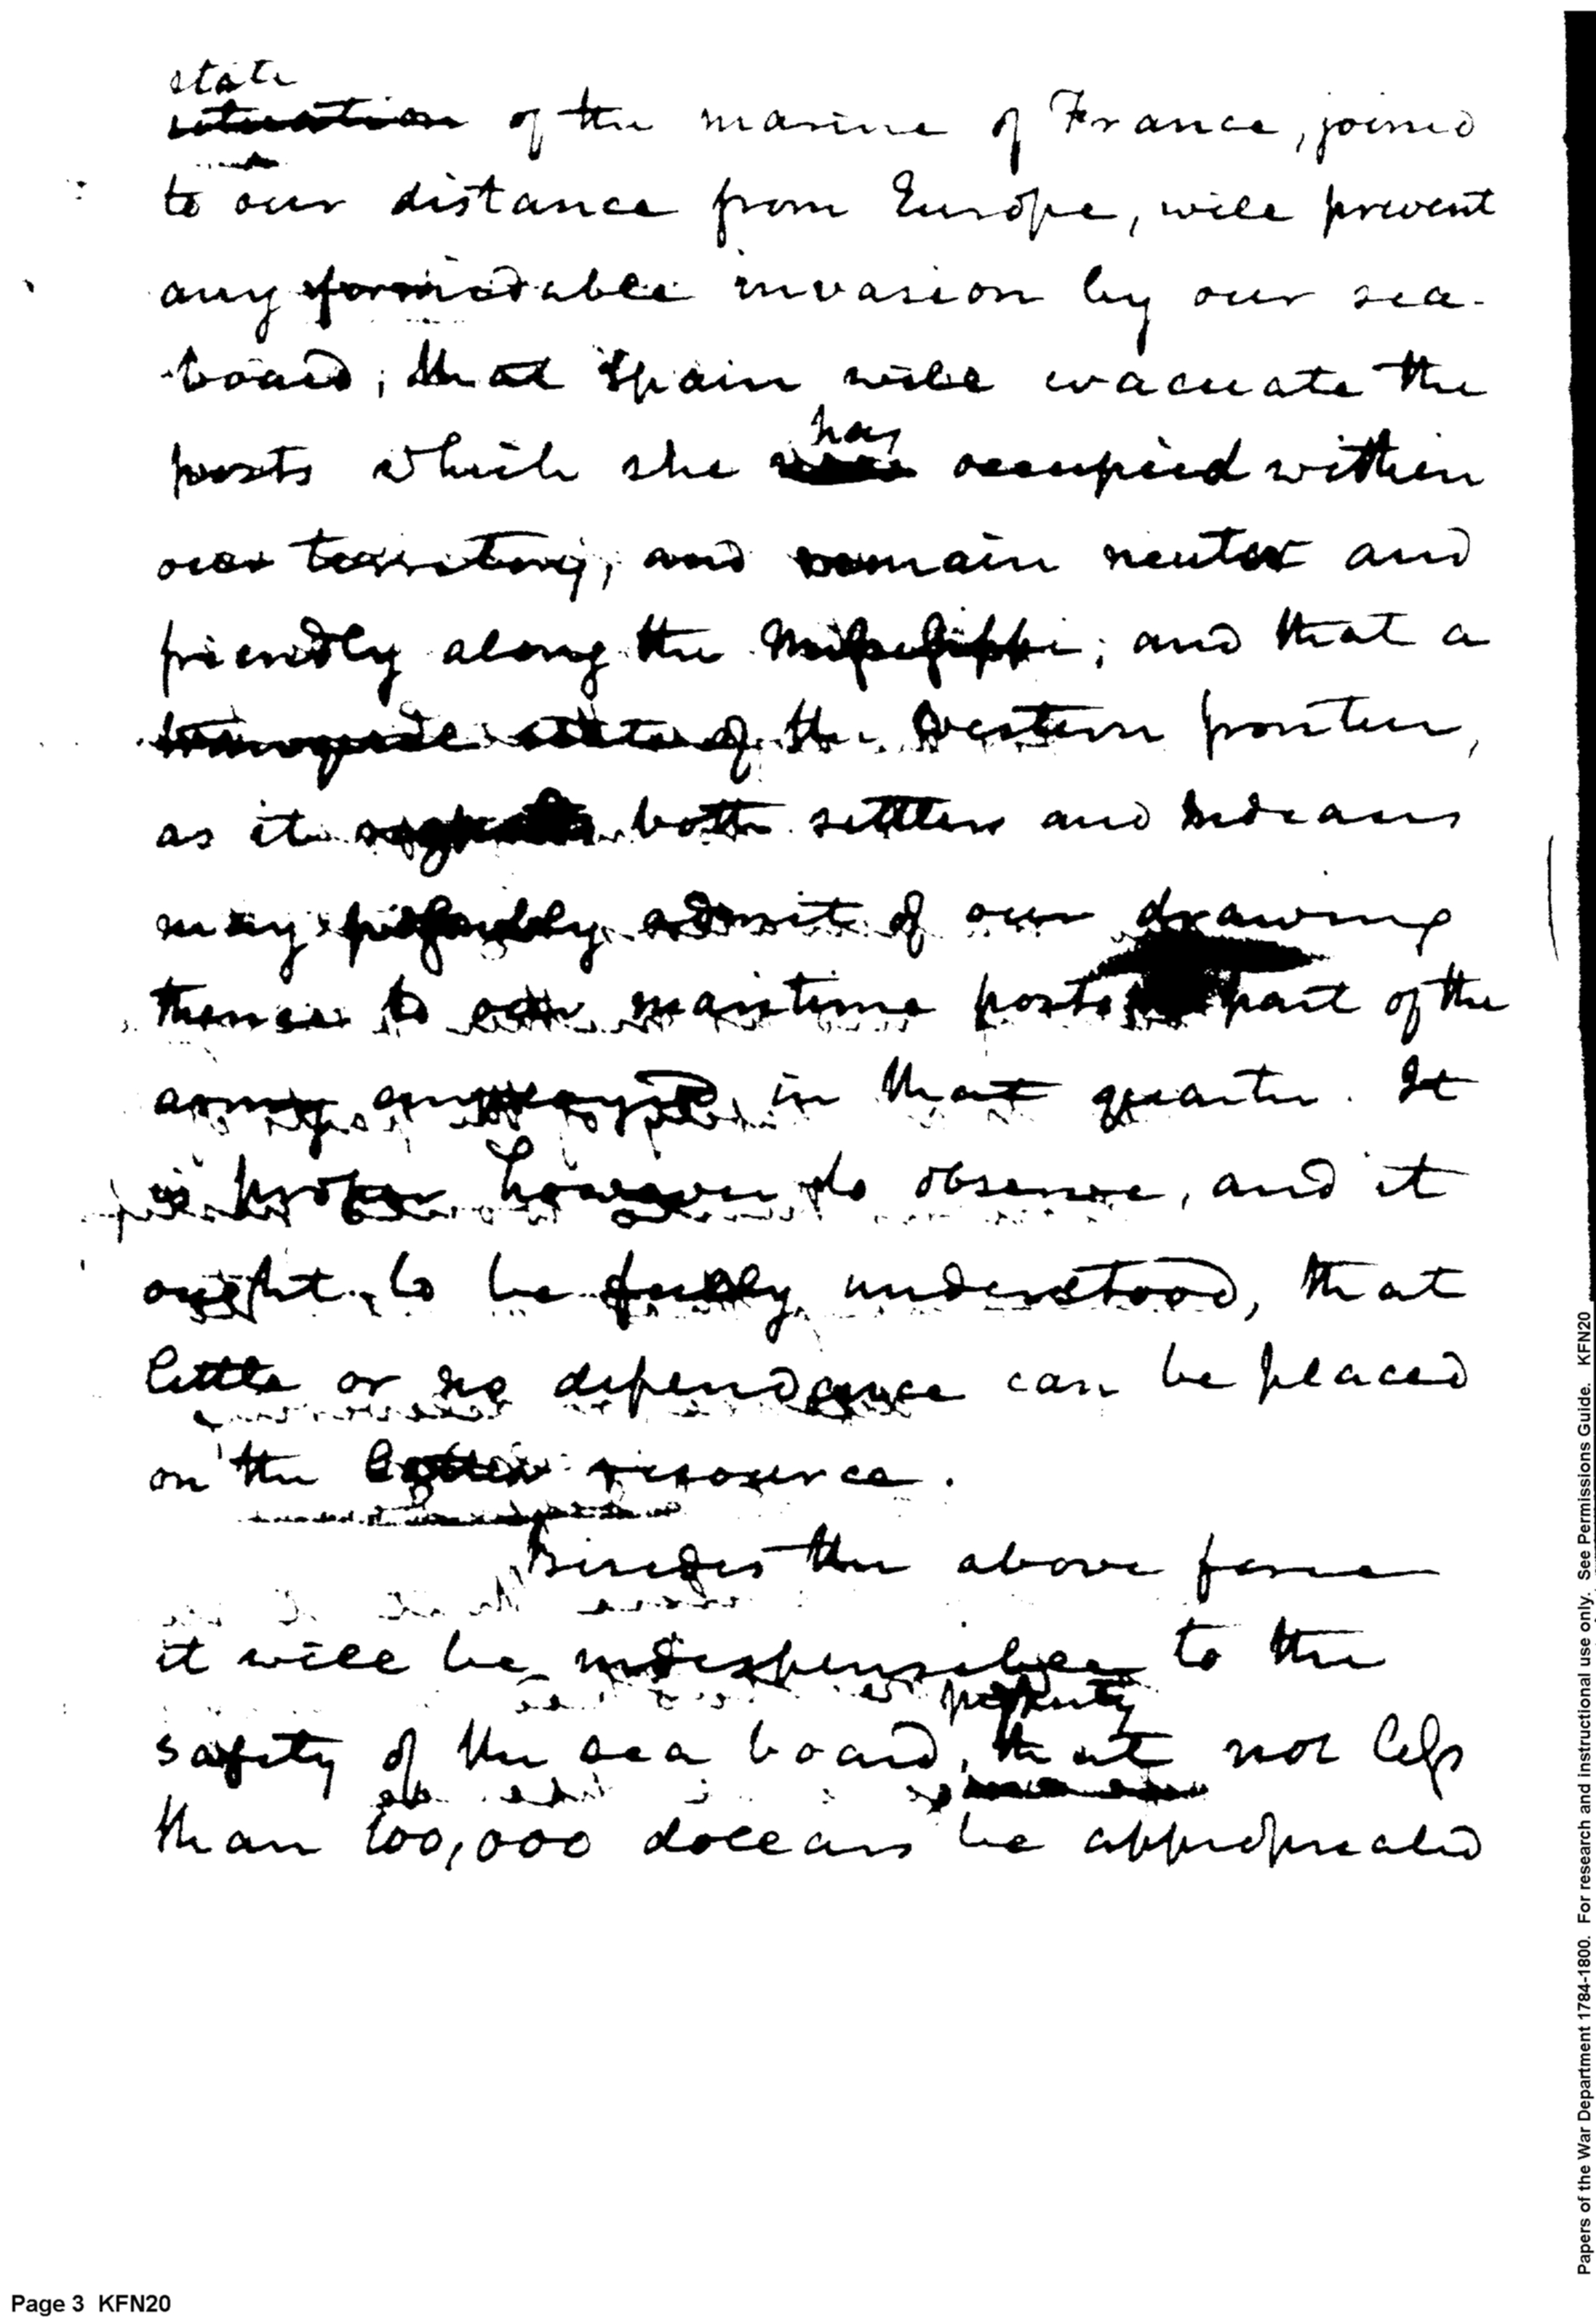 state
situation of the marine of France, joined
to our distance from Europe, will prevent
any formidable invasion by our sea-
board; that Spain will evacuate the
has
posts which she occupied within
our territory, and remain neuter and
friendly along the Missisippi; and that a
tranquil state of the Western frontier,
as it both settlers and Indians
may admit of our drawing
thence to our maritime posts part of the
army employed in that quarter. It
is proper however to observe, and it
ought to be fully understood, that
little or no dependance can be placed
on the latter resource.
Besides the above force
it will be indispensible to the
safety of the sea board, that not less
than 100,000 dollars be appropriated
Page 3 KFN20
Papers of the War Department 1784-1800. For research and instructional use only. See Permissions Guide. KFN20